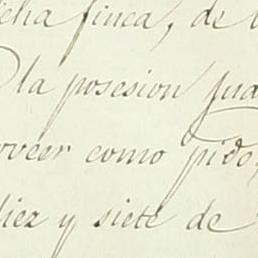 icha finca, de
la posesion jud
oveer como pido,
diez y siete de